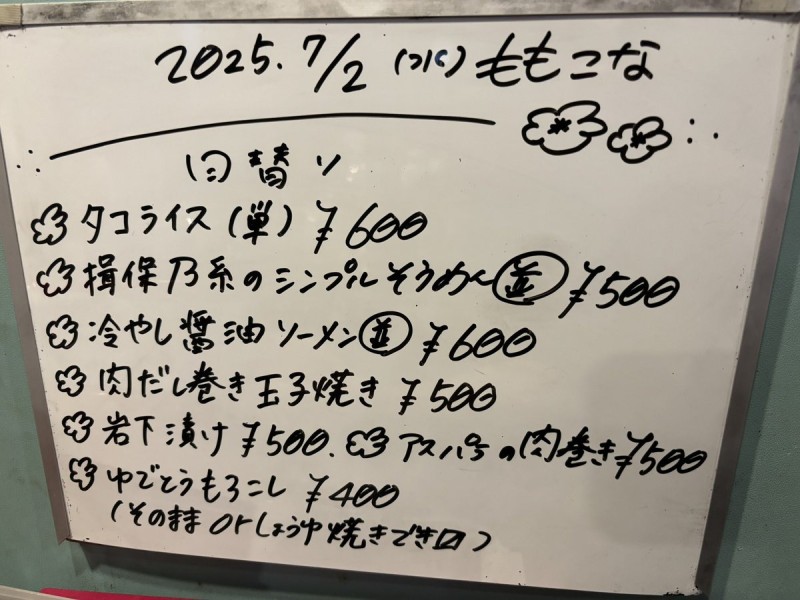 2025.7/2 (水) ももこな
日替り
タコライス(単) ¥600
揖保乃糸のシンプルそうめん 並 ¥500
冷やし醤油ソーメン 並 ¥600
肉だし巻き玉子焼き ¥500
岩下漬け ¥500. アスパラの肉巻き ¥500
ゆでとうもろこし ¥400
(そのまま or しょうゆ焼きできます)